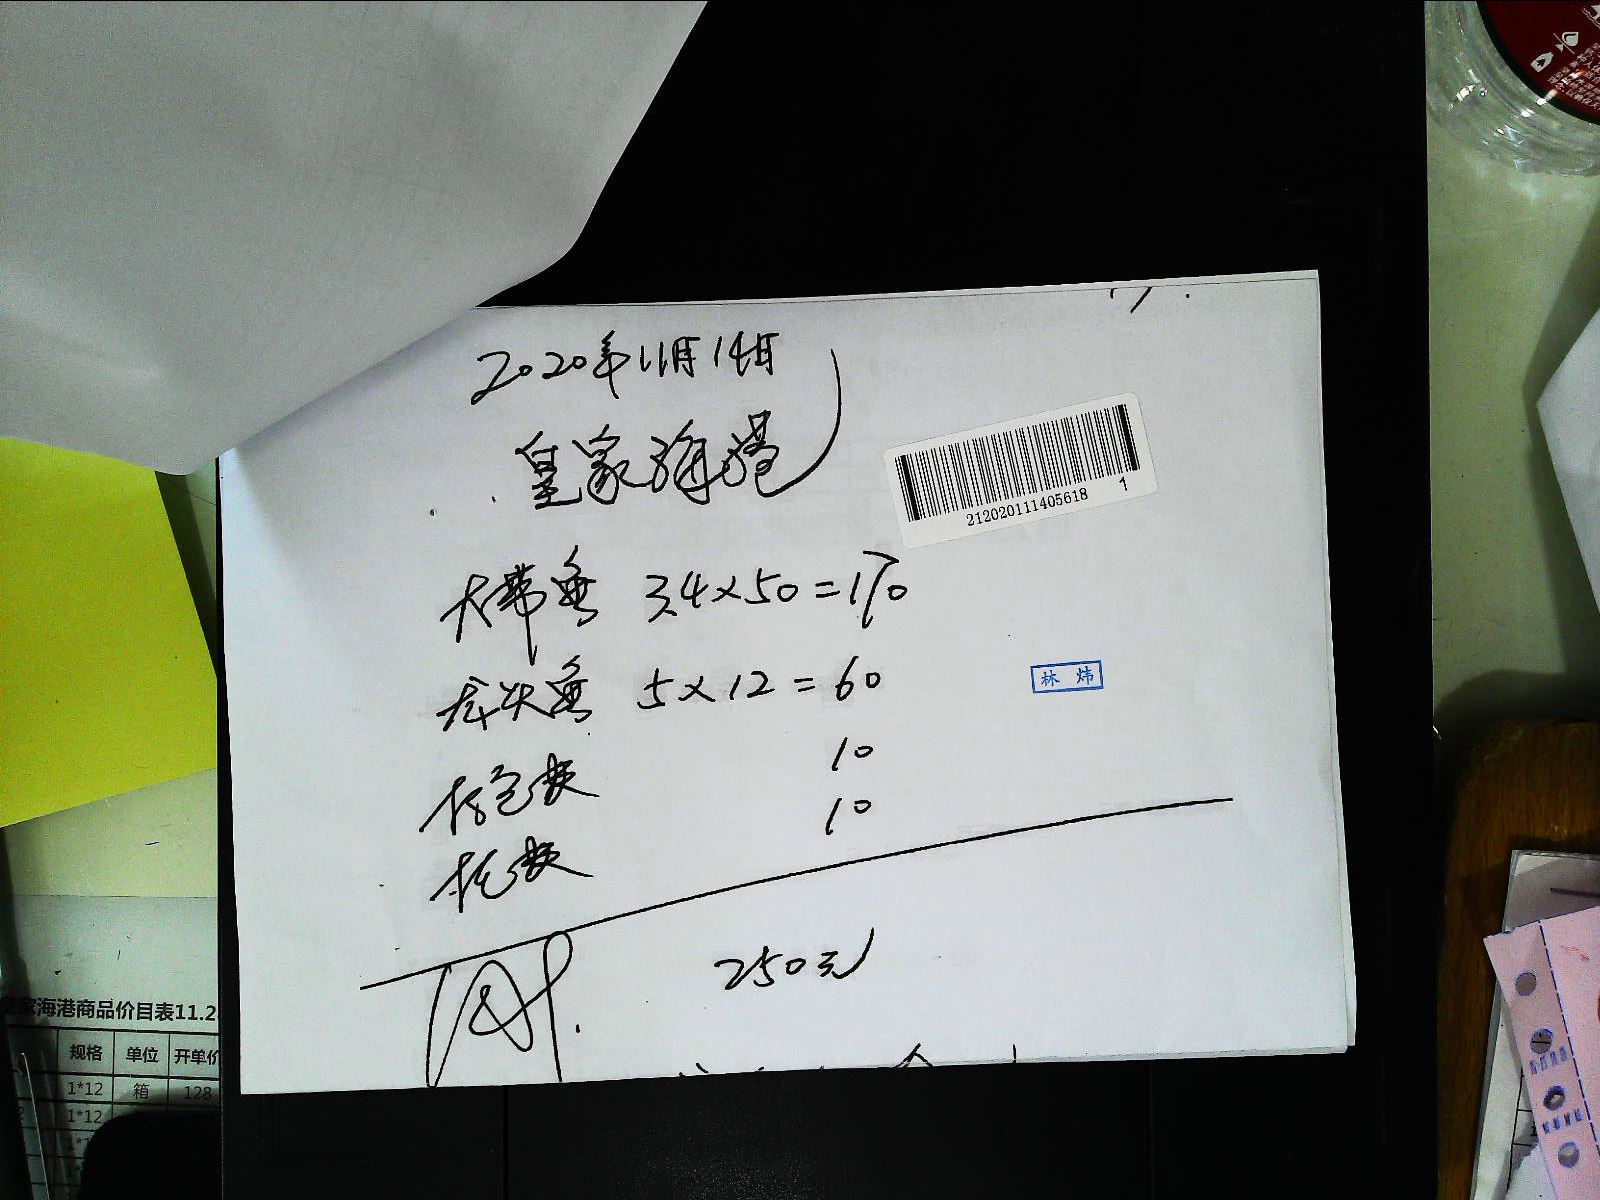 2020年11月14日
皇家海港
212020111405618 1
大带鱼 3.4×50=170
龙头鱼 5×12=60
林炜
打包费 10
托费 10
250元
家海港商品价目表11.2
规格 单位 开单价
1*12 箱 128
1*12